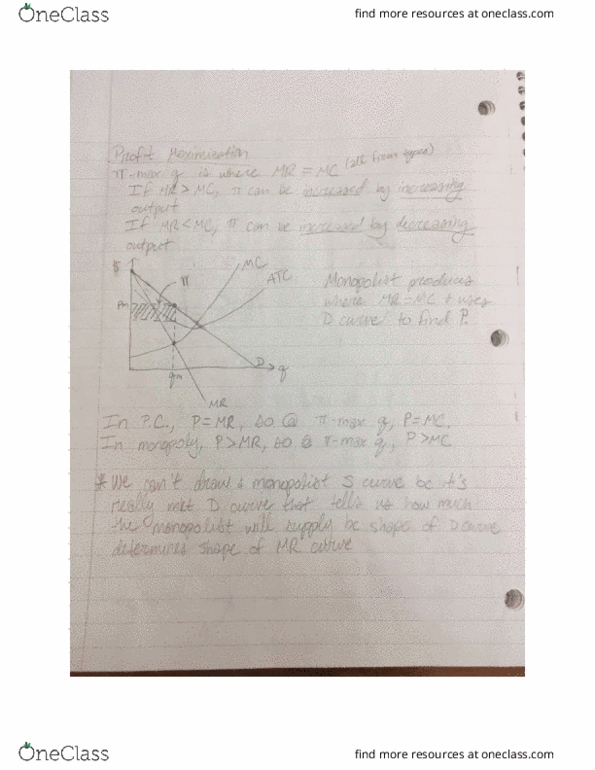 OneClass
find more resources at oneclass.com
Profit Maximization
π-max q is where MR = MC (all firm types)
If MR > MC, π can be increased by increasing
output
If MR < MC, π can be increased by decreasing
output
$
π
MC
ATC
Monopolist produces
where MR=MC + uses
D curve to find P.
Pm
D
q
qm
MR
In P.C., P=MR, so @ π-max q, P=MC.
In monopoly, P>MR, so @ π-max q, P>MC
* We can't draw a monopolist S curve bc it's
really mkt D curve that tells us how much
the monopolist will supply bc shape of D curve
determines shape of MR curve
OneClass
find more resources at oneclass.com